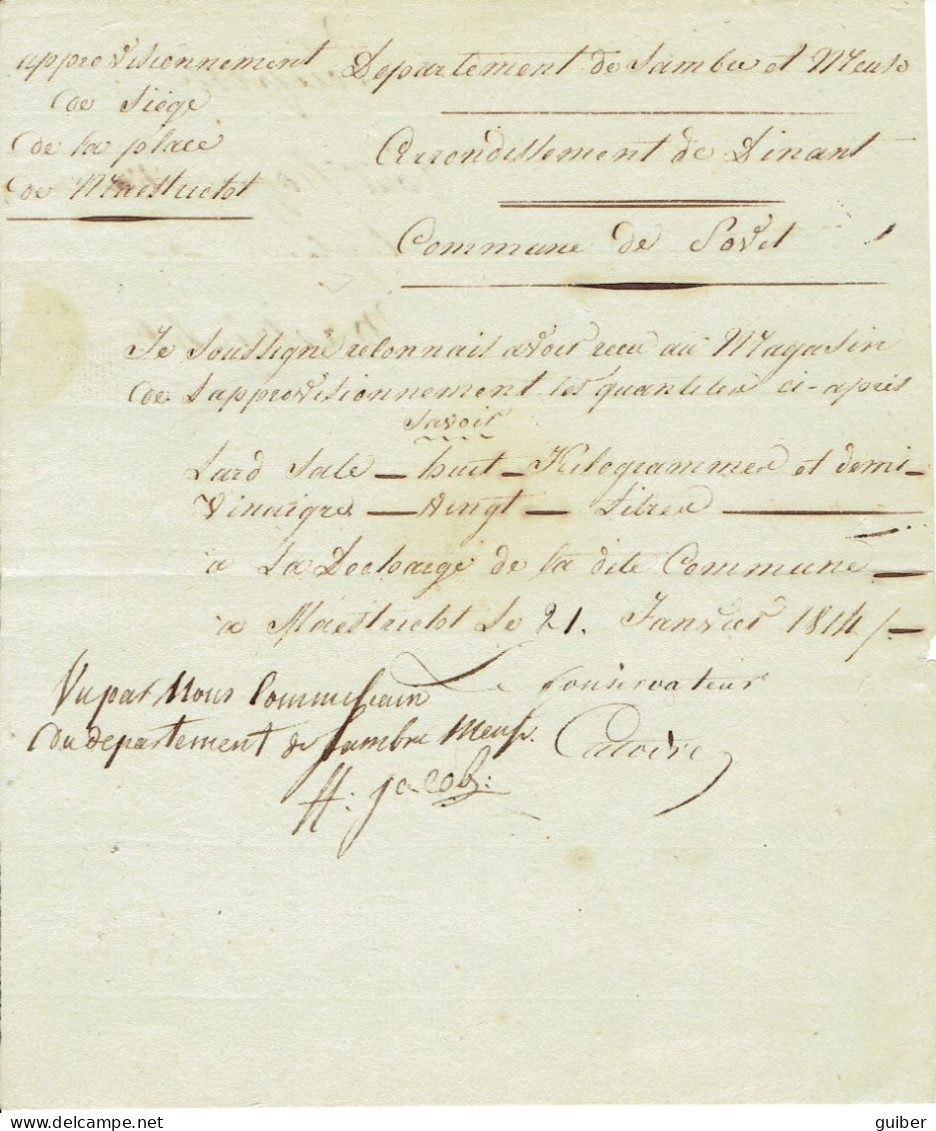 approvisionnement
de Siége
de la place
de Maestricht
Departement de Sambre et Meuse
Arrondissement de Dinant
Commune de Sovet
Je soussigne reconnais avoir recu au Magasin
de Lapprovisionnement les quantites ci-après
Savoir
Lard Salé — huit — Kilogrammes et demi —
Vinaigre — vingt — Litres —
a La Decharge de la dite Commune —
a Maestricht Le 21. Janvier 1814 /—
Le Conservateur
Catoire
Vu par Nous Commissair
du departement de Sambre Meuse.
H: Jacob:
guiber